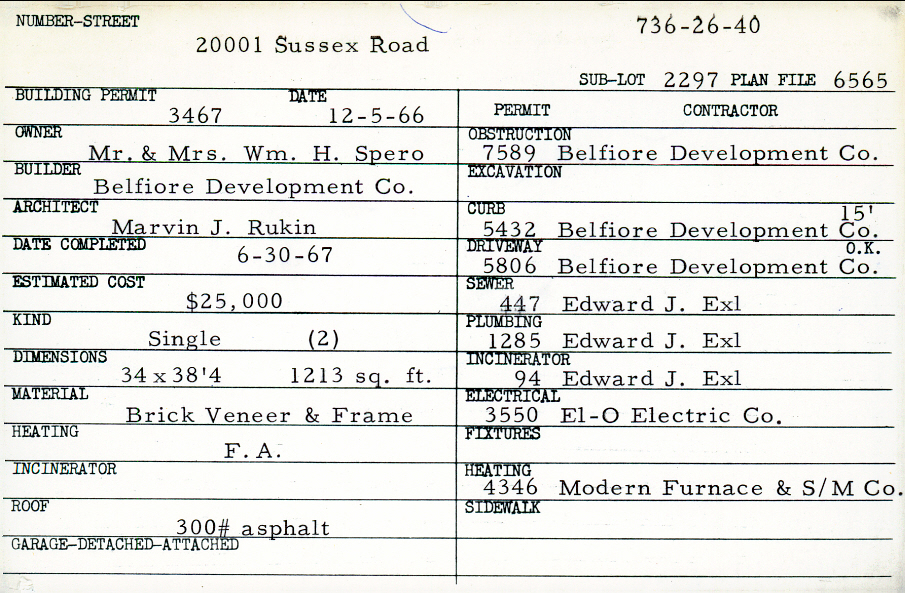 NUMBER-STREET
736-26-40
20001 Sussex Road
SUB-LOT 2297 PLAN FILE 6565
BUILDING PERMIT DATE
3467 12-5-66
OWNER
Mr. & Mrs. Wm. H. Spero
BUILDER
Belfiore Development Co.
ARCHITECT
Marvin J. Rukin
DATE COMPLETED
6-30-67
ESTIMATED COST
$25,000
KIND
Single (2)
DIMENSIONS
34 x 38'4 1213 sq. ft.
MATERIAL
Brick Veneer & Frame
HEATING
F. A.
INCINERATOR
ROOF
300# asphalt
GARAGE-DETACHED-ATTACHED
PERMIT CONTRACTOR
OBSTRUCTION
7589 Belfiore Development Co.
EXCAVATION
CURB 15'
5432 Belfiore Development Co.
DRIVEWAY O.K.
5806 Belfiore Development Co.
SEWER
447 Edward J. Exl
PLUMBING
1285 Edward J. Exl
INCINERATOR
94 Edward J. Exl
ELECTRICAL
3550 El-O Electric Co.
FIXTURES
HEATING
4346 Modern Furnace & S/M Co.
SIDEWALK